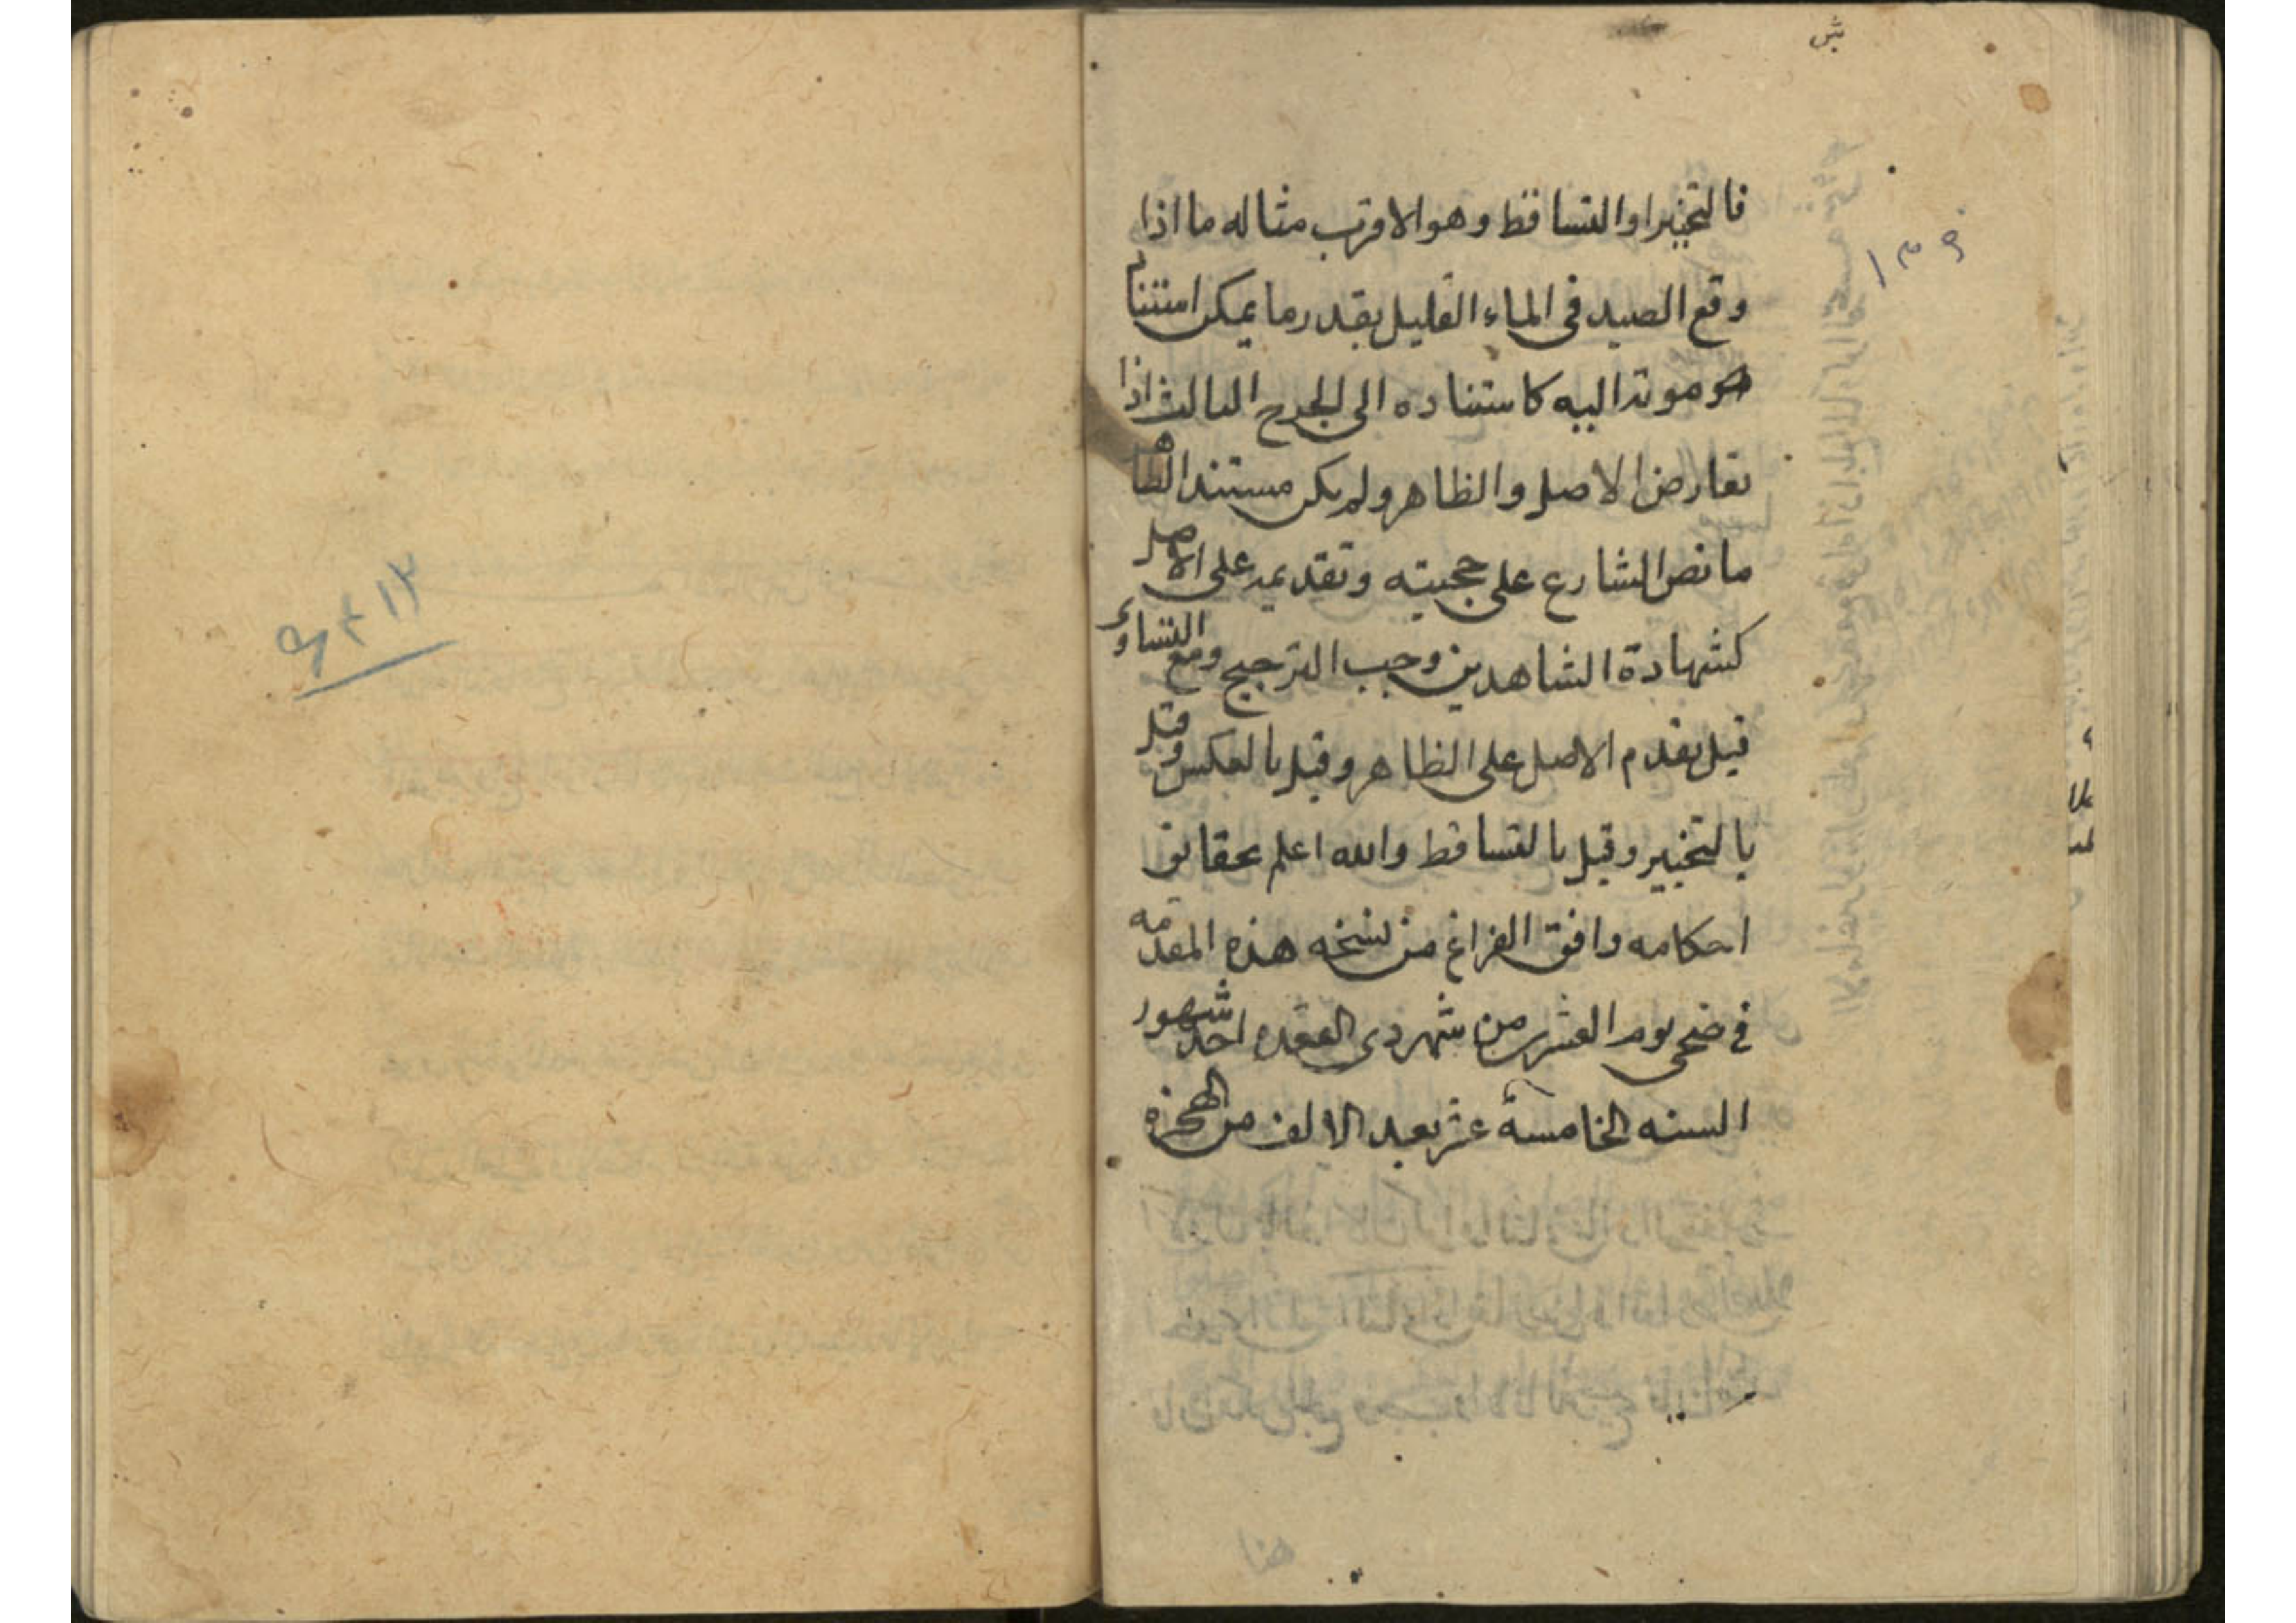 فالتخيير او التساقط وهو الاقرب مثاله ما اذا
وقع الصيد فى الماء القليل بقدر ما يمكن استناد
موته اليه كاستناده الى الجرح الثالث اذا
تعارض الاصل والظاهر ولم يكن مستند الظاهر
ما نص الشارع على حجيته وتقديمه على الاصل
كشهادة الشاهدين وجب الترجيح ومع التساوى
قيل يقدم الاصل على الظاهر وقيل بالعكس وقيل
بالتخيير وقيل بالتساقط والله اعلم بحقايق
احكامه وافق الفراغ من نسخه هذه المقدمه
فى ضحى يوم العشرين من شهر ذى القعده احد شهور
السنه الخامسة عشر بعد الالف من الهجرة